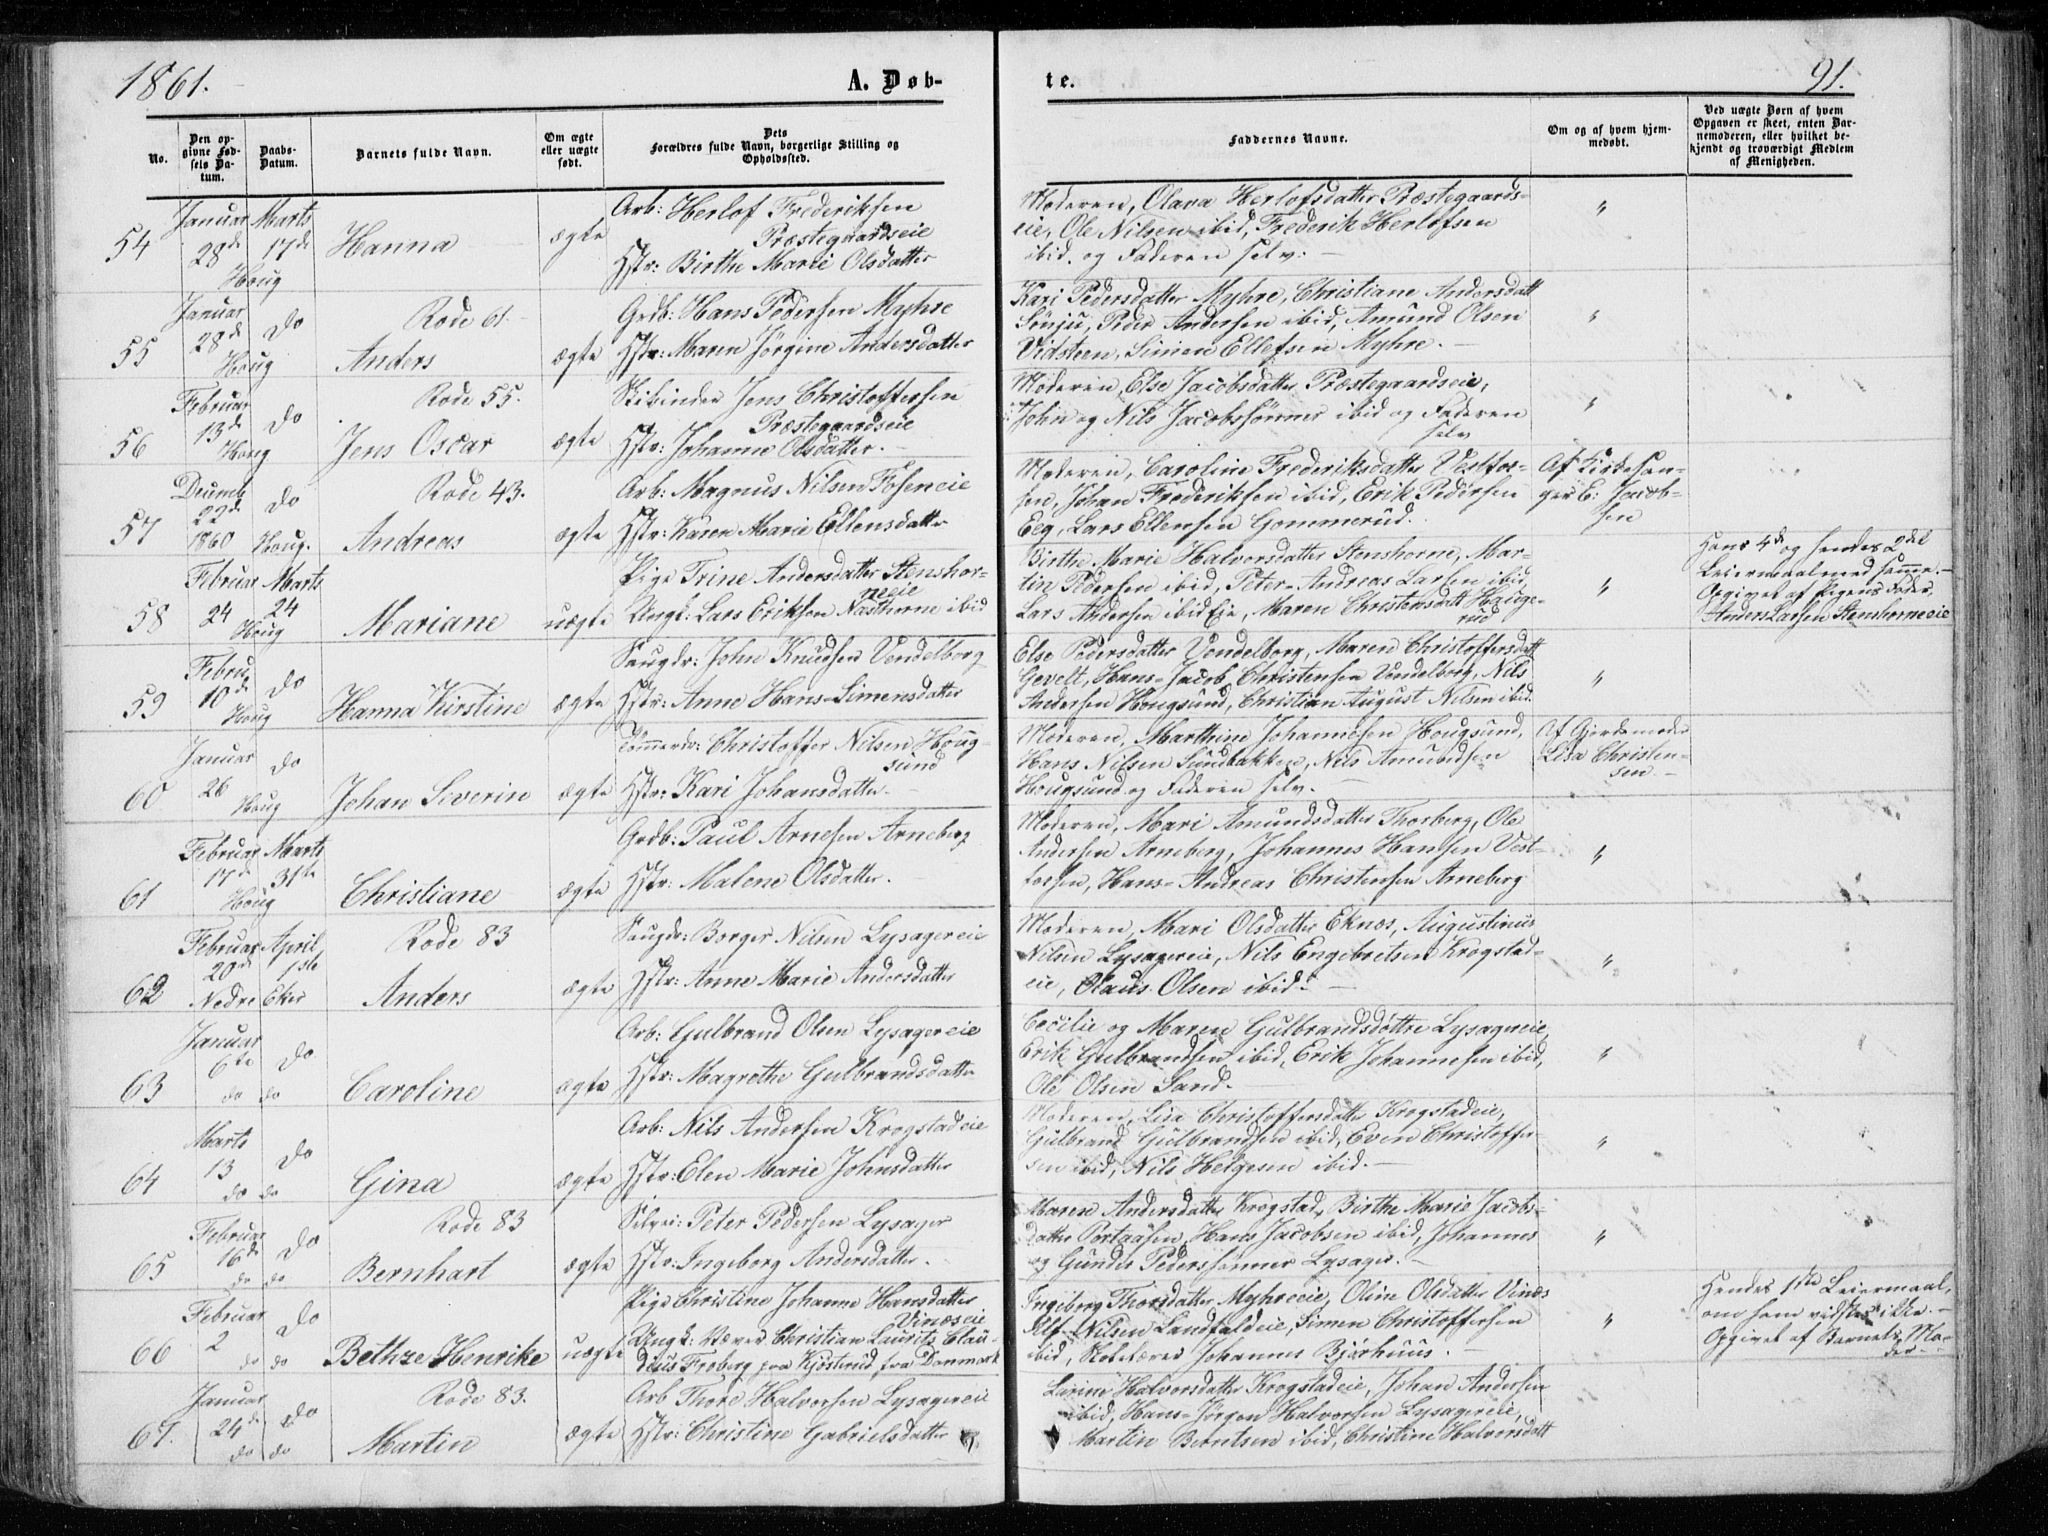 1861.
A. Døb-
te.
91.
No.
Den op-
givne Fød-
sels Da-
tum.
Daabs-
Datum.
Barnets fulde Navn.
Om ægte
eller uægte
født.
Dets
Forældres fulde Navn, borgerlige Stilling og
Opholdssted.
Faddernes Navne.
Om og af hvem hjem-
medøbt.
Ved uægte Børn af hvem
Opgaven er skeet, enten Bar-
nemoderen, eller hvilket be-
kjendt og troværdigt Medlem
af Menigheden.
54
Januar
28de
Marts
17de
Houg
Hanna
ægte
Arb: Herlof Frederiksen
Præstegaardseie
Hstr: Birthe Marie Olsdatter
Moderen, Olava Herlofsdatter Præstegaards-
eie, Ole Nilsen ibid, Frederik Herlofsen
ibid. og Faderen selv. —
"
55
Januar
28de
do
Houg
Rode 61
Anders
ægte
Grdb: Hans Pedersen Myhre
Hstr: Maren Jørgine Andersdatter
Kari Pedersdatter Myhre, Christiane Andersdatt
Sønju, Peder Andersen ibid, Amund Olsen
Vidsteen, Simen Ellefsen Myhre. —
"
56
Februar
13de
do
Houg
Rode 55.
Jens Oscar
ægte
Jens Christoffersen
Præstegaardseie
Hstr: Johanne Olsdatter. —
Moderen, Else Jacobsdatter Præstegaardseie,
John og Nils Jacobssønner ibid og Faderen
selv
"
57
Decemb
22de
1860
do
Houg.
Rode 43.
Andreas
ægte
Arb: Magnus Nilsen Foseneie
Hstr: Karen Marie Ellensdatter
Moderen, Caroline Frederiksdatter Vestfos-
sen, Johan Frederiksen ibid, Erik Pedersen
Eeg, Lars Ellensen Gommerud.
Af Kirkesan-
ger E: Jacob-
sen
58
Februar
24
Marts
24
Houg
Mariane
uægte
Pige Trine Andersdatter Stenshor-
neeie
Ungk: Lars Eriksen Næsthorne ibid
Birthe Marie Halvorsdatter Stenshorne, Mar-
tin Pedersen ibid, Peter-Andreas Larsen ibid,
Lars Andersen ibid Eie, Maren Christensdatt Hauge-
rud
"
Hans 4de og hendes 2det
Leiermaal med samme. —
Opgivet af Pigens Fader,
Anders Larsen Stenshorneeie
59
Februar
10de
do
Houg
Hanna Kirstine
ægte
Saugdr: John Knudsen Vendelborg
Hstr: Anne Hans-Simensdatter
Else Pedersdatter Vendelborg, Maren Christoffersdatt
Gevelt, Hans-Jacob Christensen Vendelborg, Nils
Andersen Hougsund, Christian August Nilsen ibid.
"
60
Januar
26
do
Houg
Johan Severin
ægte
Tømmerdr: Christoffer Nilsen Houg-
sund
Hstr: Kari Johansdatter. —
Moderen, Marthine Johannesen Hougsund,
Hans Nilsen Sundbakken, Nils Amundsen
Hougsund og Faderen selv. —
Af Gjordemoder
Lisa Christen-
sen —
61
Februar
17de
Marts
31te
Houg
Christiane
ægte
Grdb: Paul Arnesen Arneberg
Hstr: Malene Olsdatter.
Moderen, Mari Amundsdatter Thorberg, Ole
Andersen Arneberg, Johannes Hansen Vest-
fossen, Hans-Andreas Christensen Arneberg
"
62
Februar
20de
April
1ste
Nedre Eker
Rode 83
Anders
ægte
Saugdr: Borger Nilsen Lysagereie
Hstr: Anne Marie Andersdatter
Moderen, Mari Olsdatter Eknæs, Augustinus
Nilsen Lysagereie, Nils Engebretsen Krogstad-
eie, Olaus Olsen ibid. —
"
63
Januar
6te
do
do do
Caroline
ægte
Arb: Gulbrand Olsen Lysagereie
Hstr: Magrethe Gulbrandsdatter
Cecilie og Maren Gulbrandsdøttre Lysagereie,
Erik Gulbrandsen ibid, Erik Johannesen ibid,
Ole Olsen Sand. —
"
64
Marts
13
do
do do
Gina
ægte
Arb: Nils Andersen Krogstadeie
Hstr: Elen Marie Johnsdatter
Moderen, Lisa Christoffersdatter Krogstadeie,
Gulbrand Gulbrandsen ibid, Even Christoffer-
sen ibid, Nils Helgesen ibid. —
"
65
Februar
16de
do
do do
Rode 83
Bernhart
ægte
Selvei: Peter Pedersen Lysager
Hstr: Ingeborg Andersdatter.
Maren Andersdatter Krogstad, Birthe Marie Jacobs-
datter Portaasen, Hans Jacobsen ibid, Johannes
og Gunder Pederssønner Lysager. —
"
66
Februar
2
do
do do
Bethze Henrike
uægte
Pige Christine Johanne Hansdatter
Vinæseie
Ungk: Væver Christian Laurits Clau-
dius Froberg fra Kjøsterud fra Danmark
Ingeborg Thorsdatter Myhreeie, Oline Olsdatter Vinæs
Alf Nilsen Landfaldeie, Simen Christoffersen
ibid, Skolelærer Johannes Bjørhuus. —
"
Hendes 1ste Leiermaal,
om ham vidstes ikke. —
Opgivet af Barnets Mo-
der —
67.
Januar
24de
do
do do
Rode 83.
Martin
ægte
Arb Thore Halvorsen Lysagereie
Hstr: Christine Gabrielsdatter
Larine Halvorsdatter Krogstadeie, Johan Andersen
ibid, Hans-Jørgen Halvorsen Lysagereie,
Martin Berntsen ibid, Christine Halvorsdatt